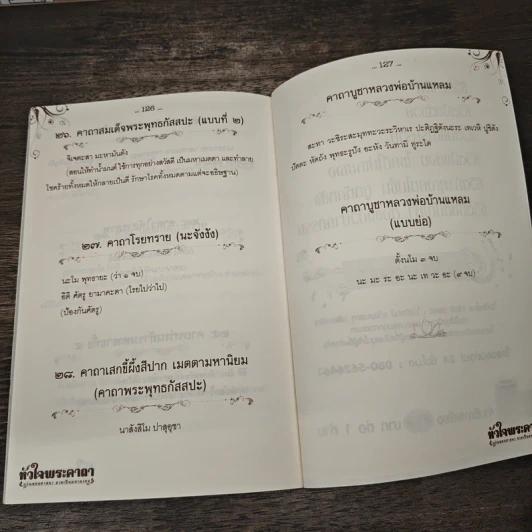 - 126 -
๒๖. คาถาสมเด็จพระพุทธกัสสปะ (แบบที่ ๒)
จิเจตะสา มะหามันตัง
(สอนให้ทำน้ำมนต์ ใช้การทุกอย่างสวัสดี เป็นมหาเมตตา และทำลาย
โชคร้ายทั้งหมดให้กลายเป็นดี รักษาโรคทั้งหมดตามแต่จะอธิษฐาน)
๒๗. คาถาโรยทราย (นะจังงัง)
นะโม พุทธายะ (ว่า ๑ จบ)
อิติ ศัตรู ยามาคะตา (โรยไปว่าไป)
(ป้องกันศัตรู)
๒๘. คาถาเสกขี้ผึ้งสีปาก เมตตามหานิยม
(คาถาพระพุทธกัสสปะ)
นาสังสิโม ปาสุอุชา
หัวใจพระคาถา
- 127 -
คาถาบูชาหลวงพ่อบ้านแหลม
สะทา วะชิระสะมุททะวะระวิหาเร ปะติฏฐิตังนะระ เทเวหิ ปูชิตัง
ปัตตะ หัตถัง พุทธะรูปัง อะหัง วันทามิ ทูระโต
คาถาบูชาหลวงพ่อบ้านแหลม
(แบบย่อ)
ตั้งนโม ๓ จบ
นะ มะ ระ อะ นะ เท วะ อะ (๙ จบ)
หัวใจพระค